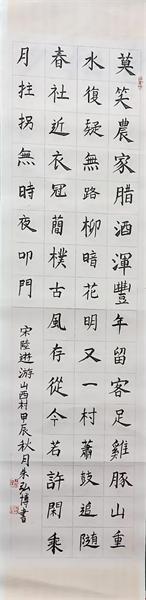 莫笑農家腊酒渾豐年留客足雞豚山重
水復疑無路柳暗花明又一村蕭鼓追隨
春社近衣冠簡樸古風存從今若許閑乘
月拄拐無時夜叩門
宋陸遊游山西村甲辰秋月朱弘博書